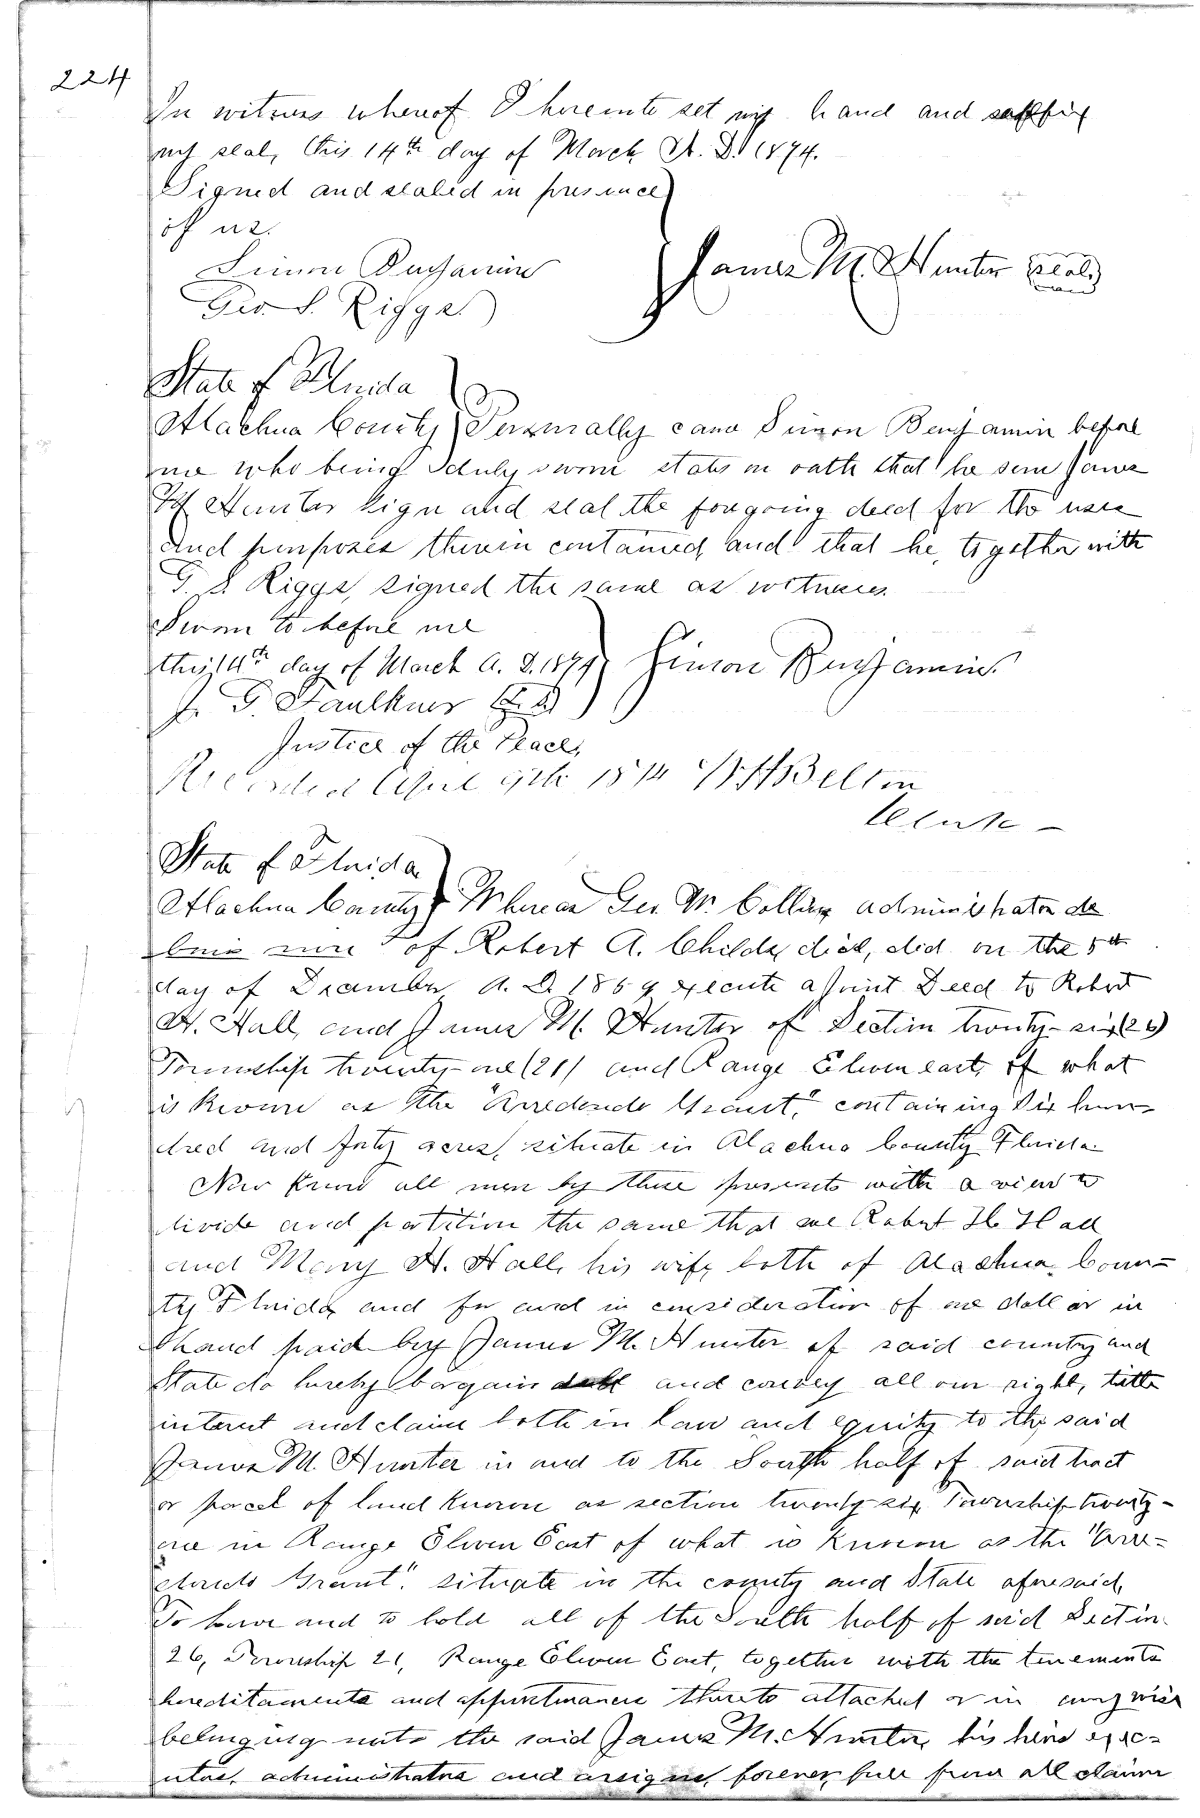 224
In witness whereof I hereunto set my hand and affix
my seal, this 14th day of March A. D. 1874.
Signed and sealed in presence
of us.
Simon Benjamin
Geo. S. Riggs.
James M. Hunter (seal)
State of Florida
Alachua County } Personally came Simon Benjamin before
me who being duly sworn states on oath that he seen James
M Hunter sign and seal the forgoing deed for the uses
and purposes therein contained and that he, together with
G. S. Riggs, signed the same as witnesses.
Sworn to before me
this 14th day of March A. D. 1874 } Simon Benjamin.
J. G. Faulkner
Justice of the Peace,
Recorded April 9th 1874 W H Belton
Clerk -
State of Florida
Alachua County } Whereas Geo. M. Collins administrator de
bonis non of Robert A. Childs, died, did on the 5th
day of December A. D. 1869 execute a Joint Deed to Robert
H. Hall, and James M. Hunter of Section twenty-six (26)
Township twenty-one (21) and Range Eleven east, of what
is known as the "Arredondo Grant," containing Six hun-
dred and forty acres, situate in Alachua County Florida
Now know all men by these presents with a view to
divide and partition the same that we Robert H. Hall
and Mary H. Hall, his wife both of Alachua Coun=
ty Florida and for and in consideration of one dollar in
hand paid by James M. Hunter of said country and
State do hereby bargain sell and convey all our right, title
interest and claim both in law and equity to the said
James M. Hunter in and to the South half of said tract
or parcel of land known as section twenty-six Township twenty-
one in Range Eleven East of what is known as the "Arre=
dondo Grant". situate in the county and State aforesaid,
To have and to hold all of the South half of said Section
26, Township 21, Range Eleven East, together with the tenements
hereditaments and appurtenances thereto attached or in any wise
belonging unto the said James M. Hunter, his heirs exec=
utors, administrators and assigns, forever, free from all claim